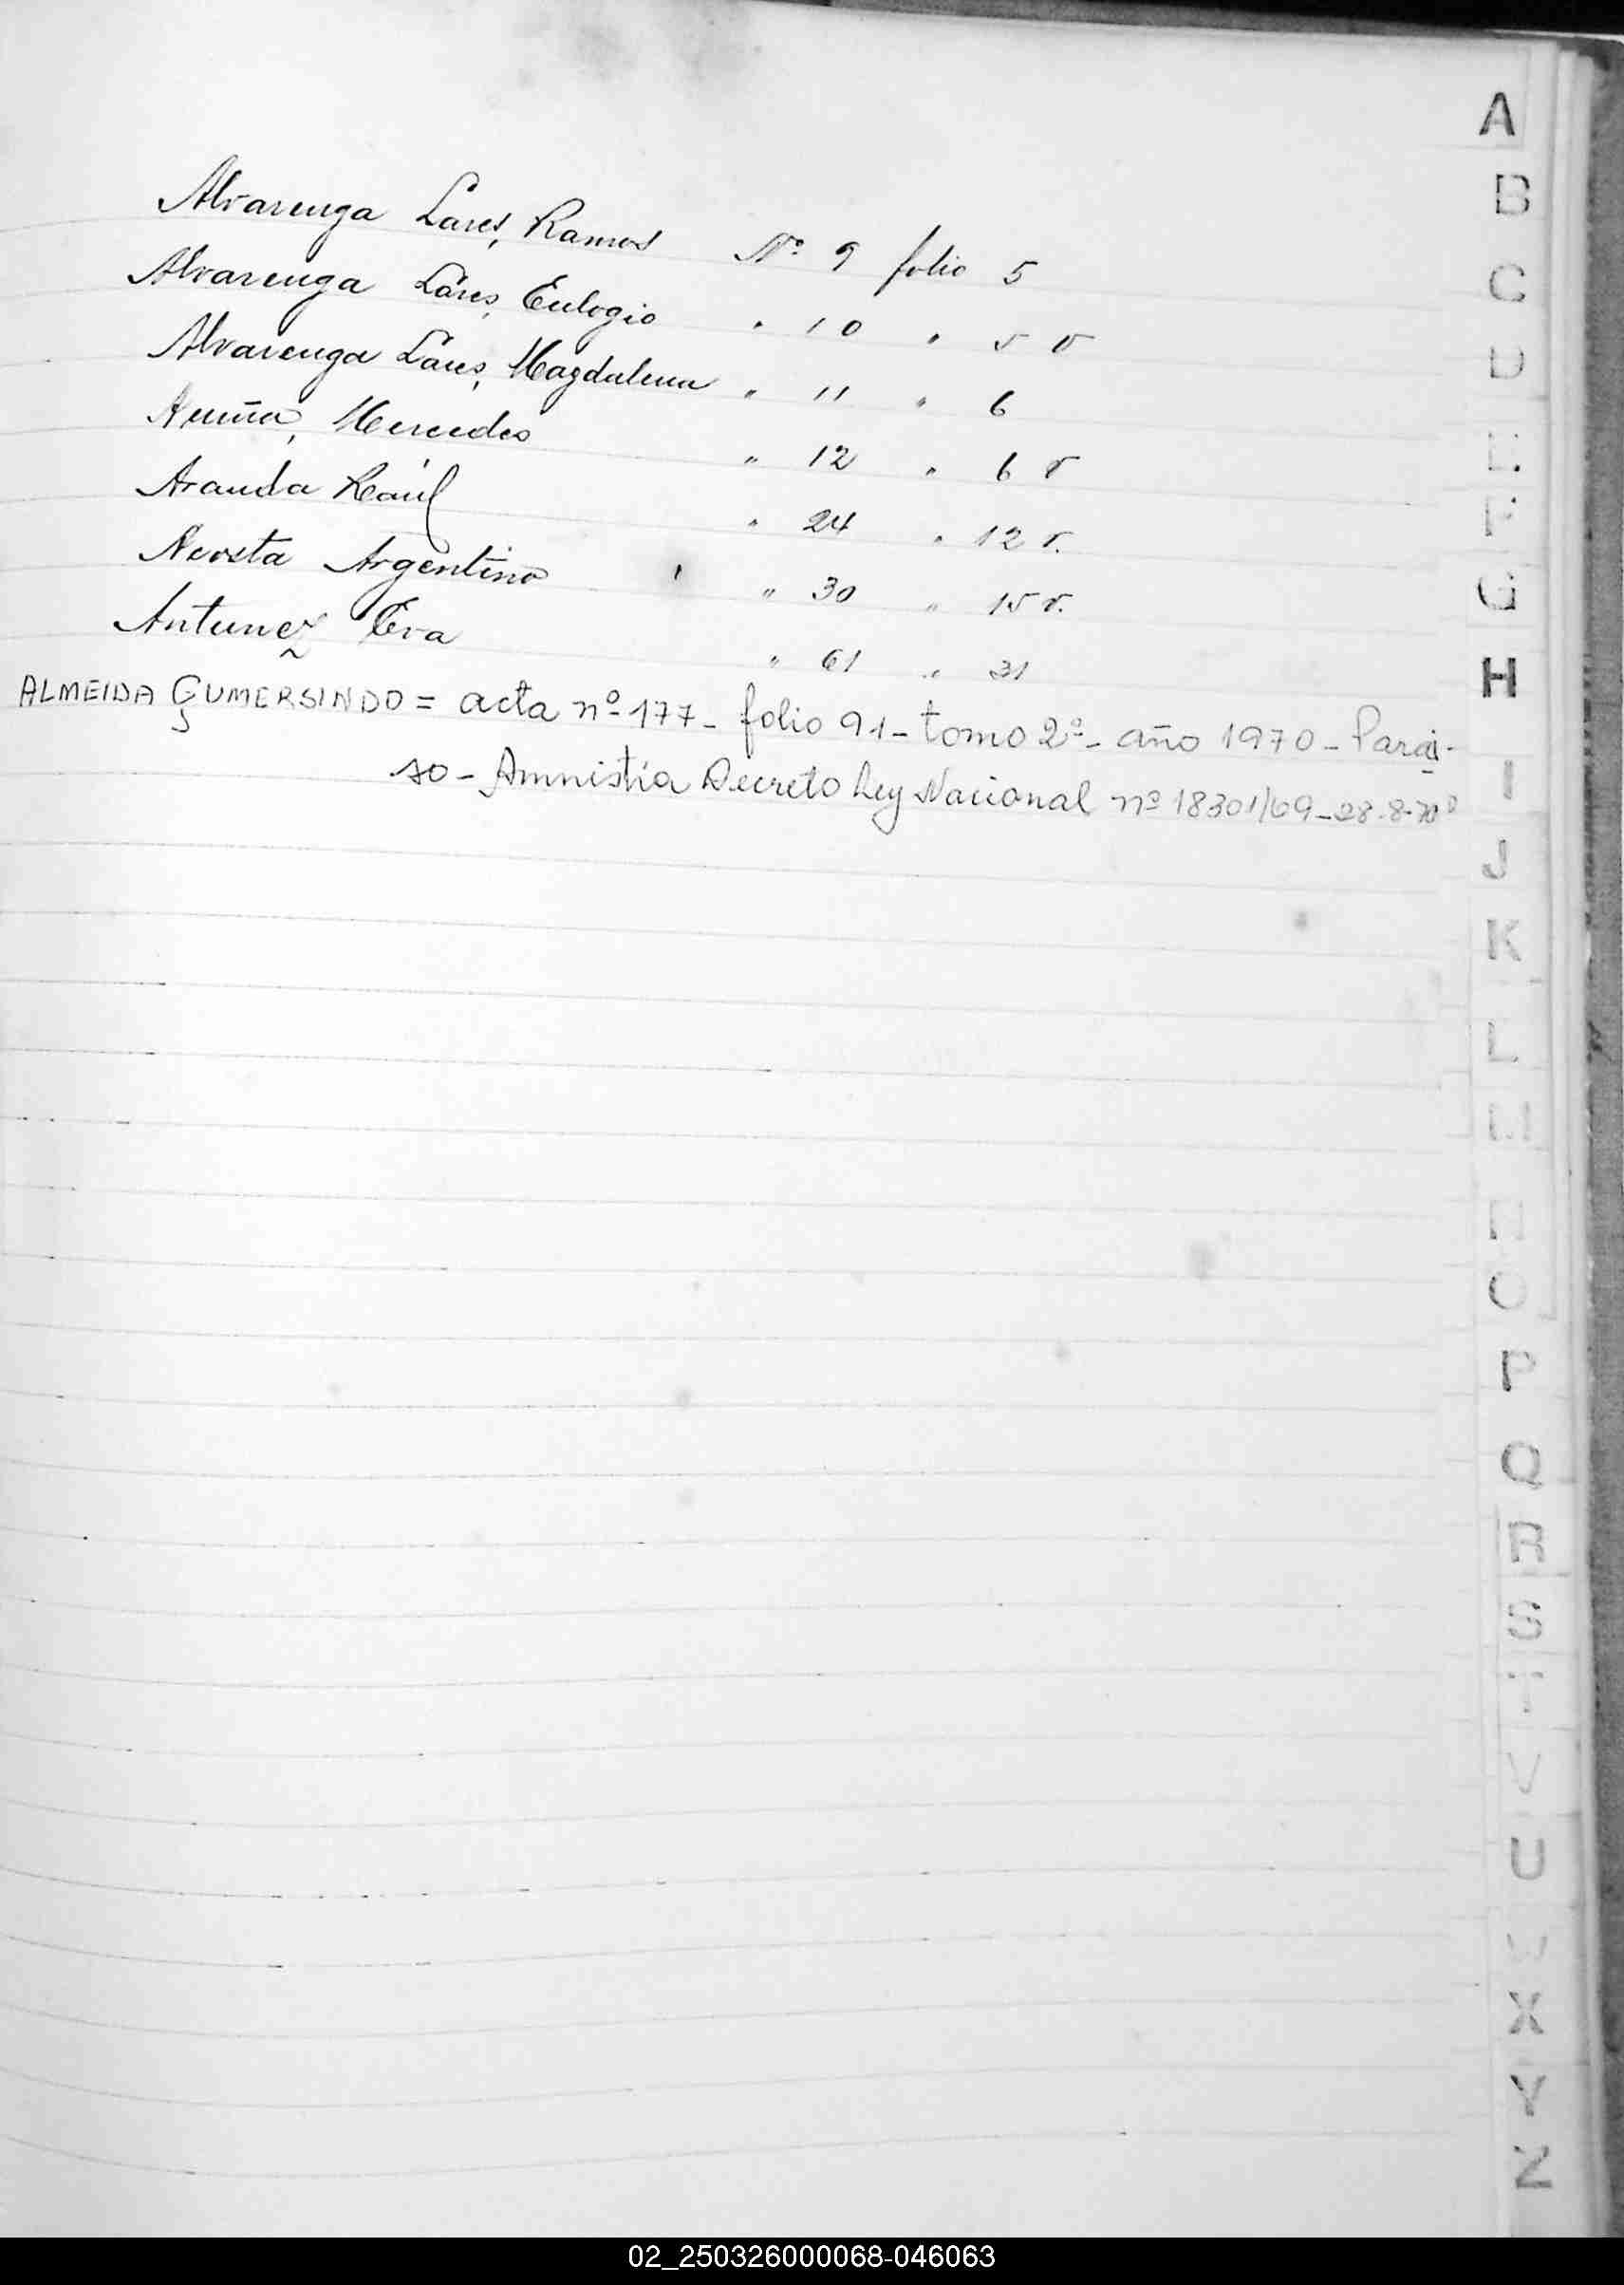 Alvarenga Lares, Ramos Nº 9 folio 5
Alvarenga Lares, Eulogio " 10 " 5 v
Alvarenga Lares, Magdalena " 11 " 6
Acuña, Mercedes " 12 " 6 v
Aranda Raúl " 24 " 12 v.
Acosta Argentino " 30 " 15 v.
Antunez Eva " 61 " 31
ALMEIDA GUMERSINDO = acta nº 177 - folio 91 - tomo 2º - año 1970 - Parai-
so - Amnistía Decreto Ley Nacional nº 18301/69 - 28-8-70
A
B
C
D
E
F
G
H
I
J
K
L
M
N
O
P
Q
R
S
T
V
U
W
X
Y
Z
02_250326000068-046063